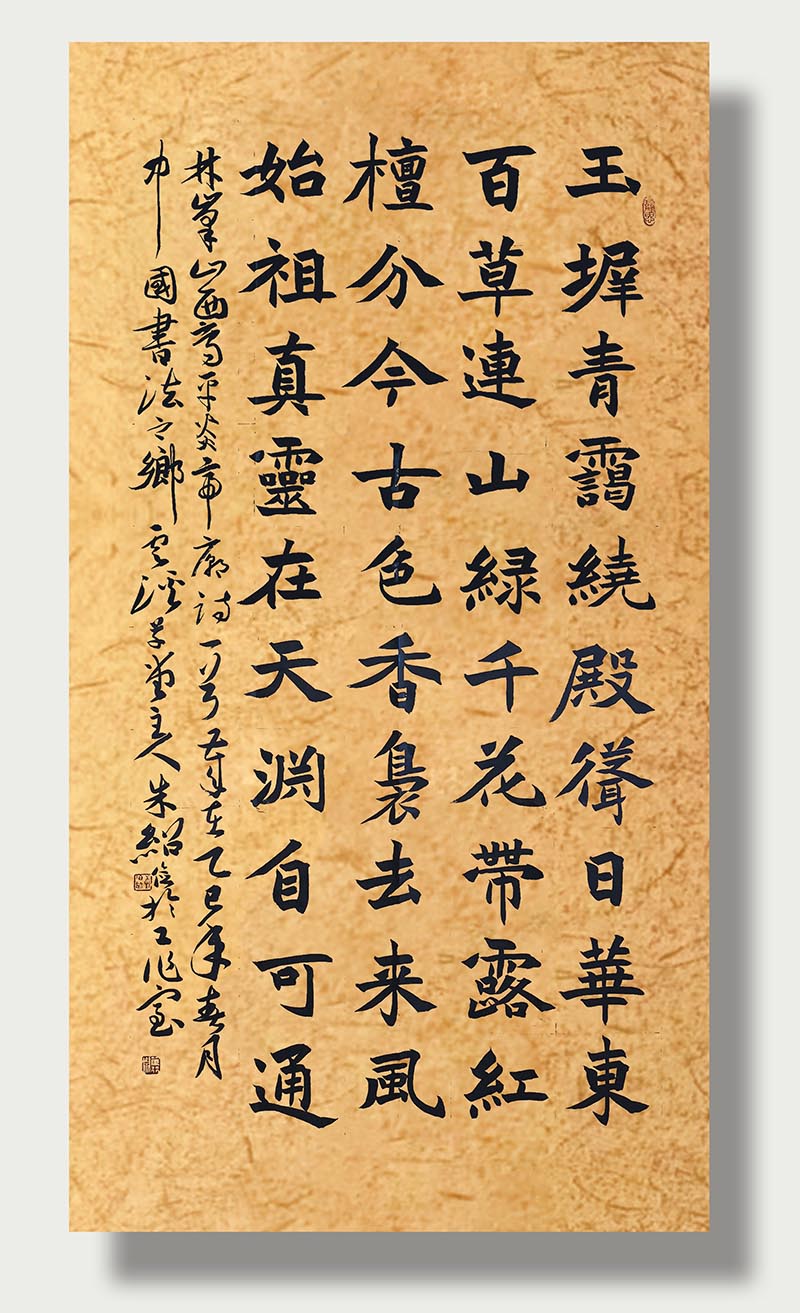 玉墀青靄繞殿聳日華東
百草連山緑千花帶露紅
檀分今古色香裊去来風
始祖真靈在天渊自可通
林峯山西高平炎帝廟詩一首歲在乙巳年春月
中國書法之鄉云溪草堂主人朱紹於工作室